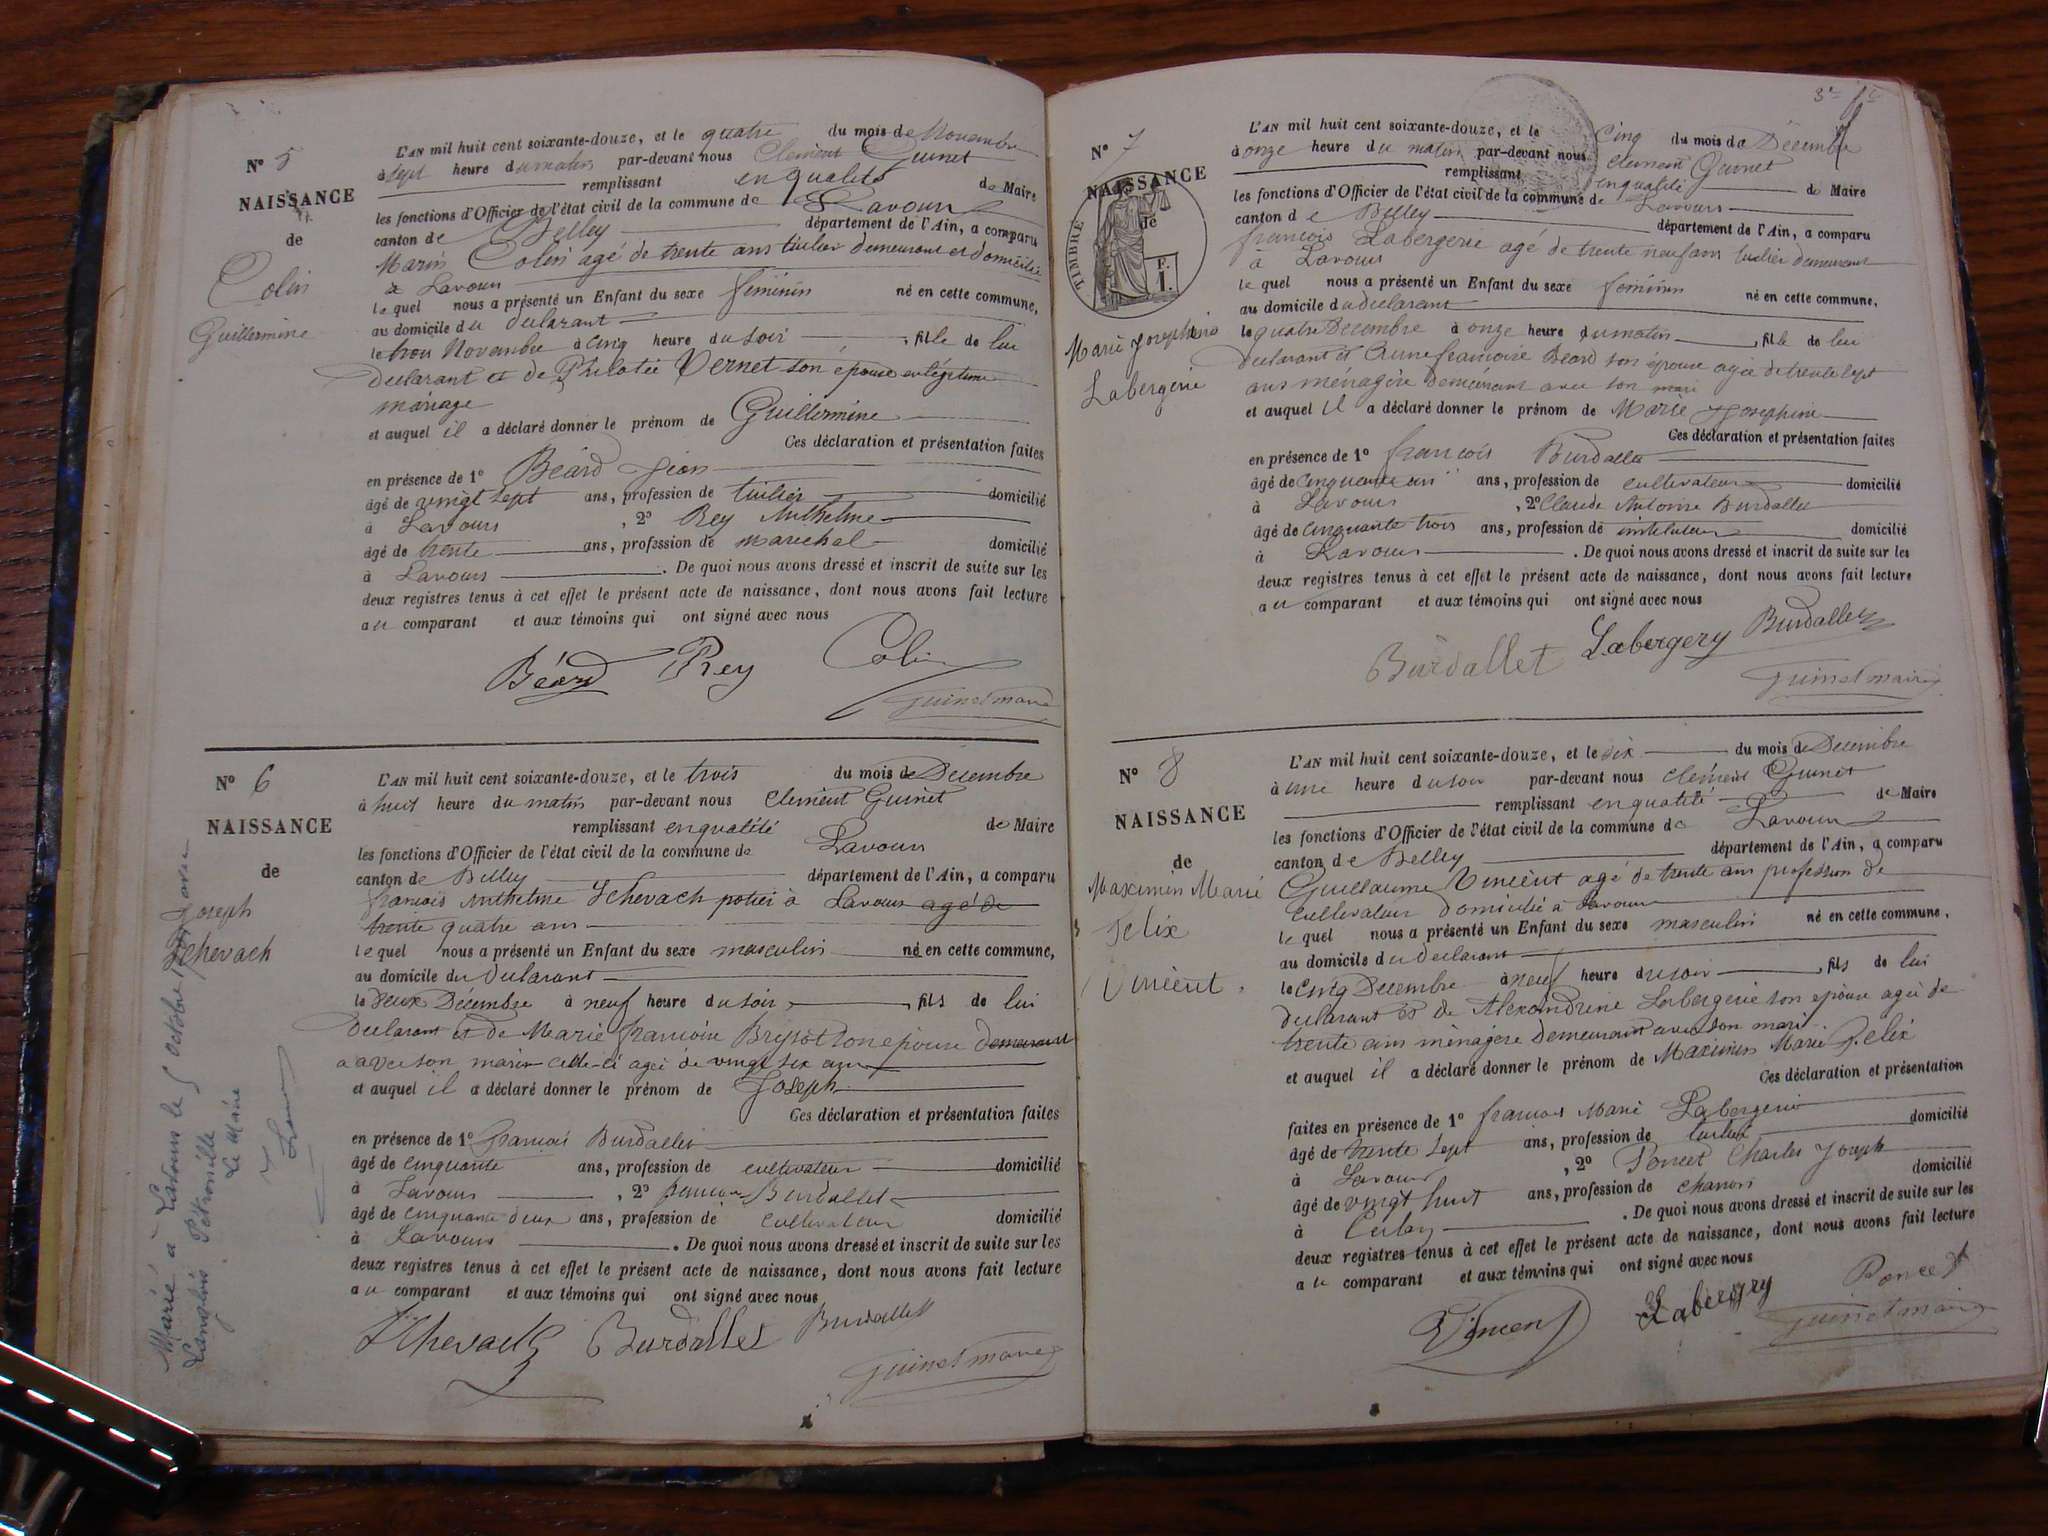 N° 5
NAISSANCE
de
Colin
Guillermine
L'AN mil huit cent soixante-douze, et le quatre du mois de Novembre
à sept heure du matin par-devant nous Clement Guinet
remplissant en qualité de Maire
les fonctions d'Officier de l'état civil de la commune de Lavours
canton de Belley département de l'Ain, a comparu
Marin Colin agé de trente ans tuilier demeurant et domicilié
à Lavours
le quel nous a présenté un Enfant du sexe féminin né en cette commune,
au domicile du declarant
le trois Novembre à cinq heure du soir fille de lui
declarant et de Philotée Vernet son épouse en légitime
mariage
et auquel il a déclaré donner le prénom de Guillermine
Ces déclaration et présentation faites
en présence de 1° Béard
âgé de vingt sept ans, profession de tuilier domicilié
à Lavours , 2° Rey Anthelme
âgé de trente ans, profession de marechal domicilié
à Lavours . De quoi nous avons dressé et inscrit de suite sur les
deux registres tenus à cet effet le présent acte de naissance, dont nous avons fait lecture
au comparant et aux témoins qui ont signé avec nous
Béard Rey Colin
Guinet maire
N° 6
NAISSANCE
de
Joseph
Schevach
Marié à Lavours le 5 octobre avec
Langlois Pétronille
Le Maire
L'AN mil huit cent soixante-douze, et le trois du mois de Decembre
à huit heure du matin par-devant nous Clement Guinet
remplissant en qualité de Maire
les fonctions d'Officier de l'état civil de la commune de Lavours
canton de Belley département de l'Ain, a comparu
françois Anthelme Schevach potier à Lavours agé de
trente quatre ans
le quel nous a présenté un Enfant du sexe masculin né en cette commune,
au domicile du declarant
le deux Décembre à neuf heure du soir fils de lui
declarant et de Marie françoise son epouse demeurant
avec son mari celle-ci agée de vingt six ans
et auquel il a déclaré donner le prénom de Joseph
Ces déclaration et présentation faites
en présence de 1° françois Burdallet
âgé de cinquante ans, profession de cultivateur domicilié
à Lavours , 2° françois Burdallet
âgé de cinquante deux ans, profession de cultivateur domicilié
à Lavours . De quoi nous avons dressé et inscrit de suite sur les
deux registres tenus à cet effet le présent acte de naissance, dont nous avons fait lecture
au comparant et aux témoins qui ont signé avec nous
Schevach Burdallet Burdallet
Guinet maire
N° 7
NAISSANCE
de
TIMBRE
F.
1.
Marie Josephine
Labergerie
L'AN mil huit cent soixante-douze, et le cinq du mois de Décembre
à onze heure du matin par-devant nous Clement Guinet
remplissant en qualité de Maire
les fonctions d'Officier de l'état civil de la commune de Lavours
canton de Belley département de l'Ain, a comparu
françois Labergerie agé de trente neuf ans tuilier demeurant
à Lavours
le quel nous a présenté un Enfant du sexe feminin né en cette commune,
au domicile du declarant
le quatre Decembre à onze heure du matin fille de lui
declarant et Anne francoise Beard son épouse agée de trente sept
ans ménagère demeurant avec son mari
et auquel il a déclaré donner le prénom de Marie Josephine
Ces déclaration et présentation faites
en présence de 1° françois Burdallet
âgé de cinquante un ans, profession de cultivateur domicilié
à Lavours , 2° Claude Antoine Burdallet
âgé de cinquante trois ans, profession de instituteur domicilié
à Lavours . De quoi nous avons dressé et inscrit de suite sur les
deux registres tenus à cet effet le présent acte de naissance, dont nous avons fait lecture
au comparant et aux témoins qui ont signé avec nous
Burdallet Labergery Burdallet
Guinet maire
N° 8
NAISSANCE
de
Maximin Marie
Felix
Vincent
L'AN mil huit cent soixante-douze, et le six du mois de Decembre
à une heure du soir par-devant nous Clément Guinet
remplissant en qualité de Maire
les fonctions d'Officier de l'état civil de la commune de Lavours
canton de Belley département de l'Ain, a comparu
Guillaume Vincent agé de trente ans profession de
cultivateur domicilié à Lavours
le quel nous a présenté un Enfant du sexe masculin né en cette commune,
au domicile du declarant
le cinq Decembre à neuf heure du soir fils de lui
declarant et de Alexandrine Labergerie son épouse agée de
trente ans ménagère demeurant avec son mari
et auquel il a déclaré donner le prénom de Maximin Marie Felix
Ces déclaration et présentation
faites en présence de 1° françois Marie Labergerie
âgé de trente sept ans, profession de tuilier domicilié
à Lavours , 2° Poncet Charles Joseph
âgé de vingt huit ans, profession de domicilié
à Culoz . De quoi nous avons dressé et inscrit de suite sur les
deux registres tenus à cet effet le présent acte de naissance, dont nous avons fait lecture
au comparant et aux témoins qui ont signé avec nous
Vincent Labergery Poncet
Guinet maire